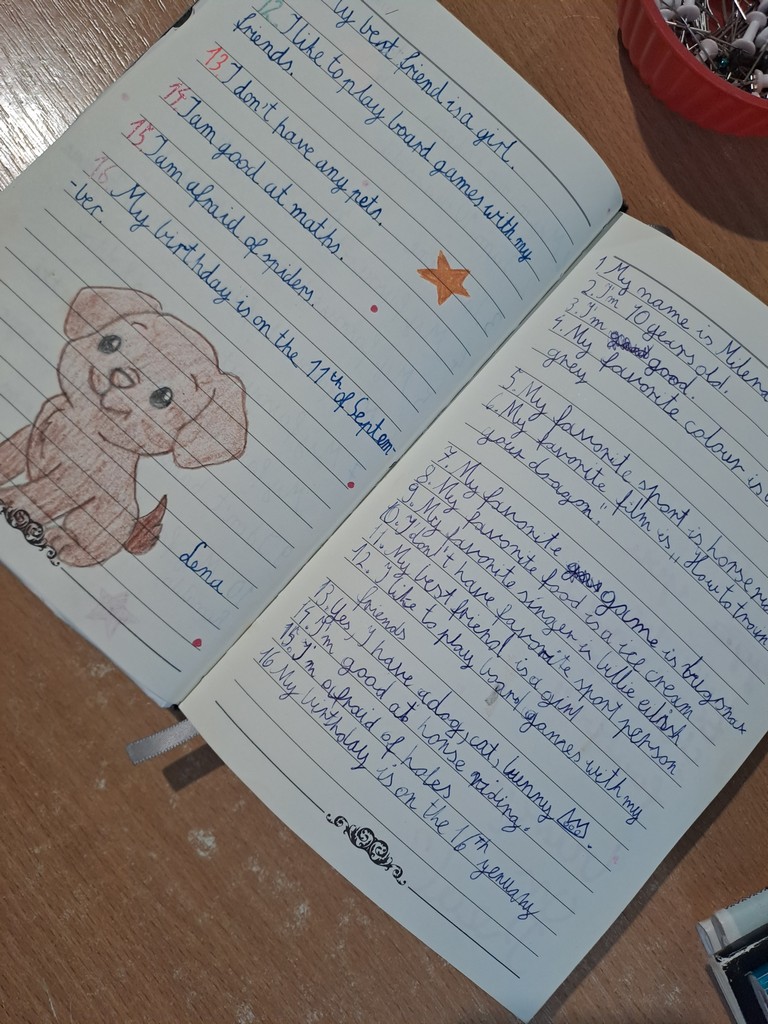 y best friend is a girl.
12 I like to play board games with my
friends.
13 I don't have any pets.
14 I am good at maths.
15 I am afraid of spiders.
16 My birthday is on the 11th of Septem-
-ber.
Lena
1. My name is Milena
2. I'm 10 years old.
3. I'm good.
4. My favorite colour is
grey
5. My favorite sport is horse
6. My favorite film is "How to train
your dragon".
7. My favorite game is bugsnax
8. My favorite food is a ice cream
9. My favorite singer is billie eilish
10. I don't have favorite sport person
11. My best friend is a girl
12. I like to play board games with my
friends
13. Yes, I have a dog, cat, bunny
14. I'm good at horse riding.
15. I'm afraid of holes
16 My birthday is on the 16th yenuary